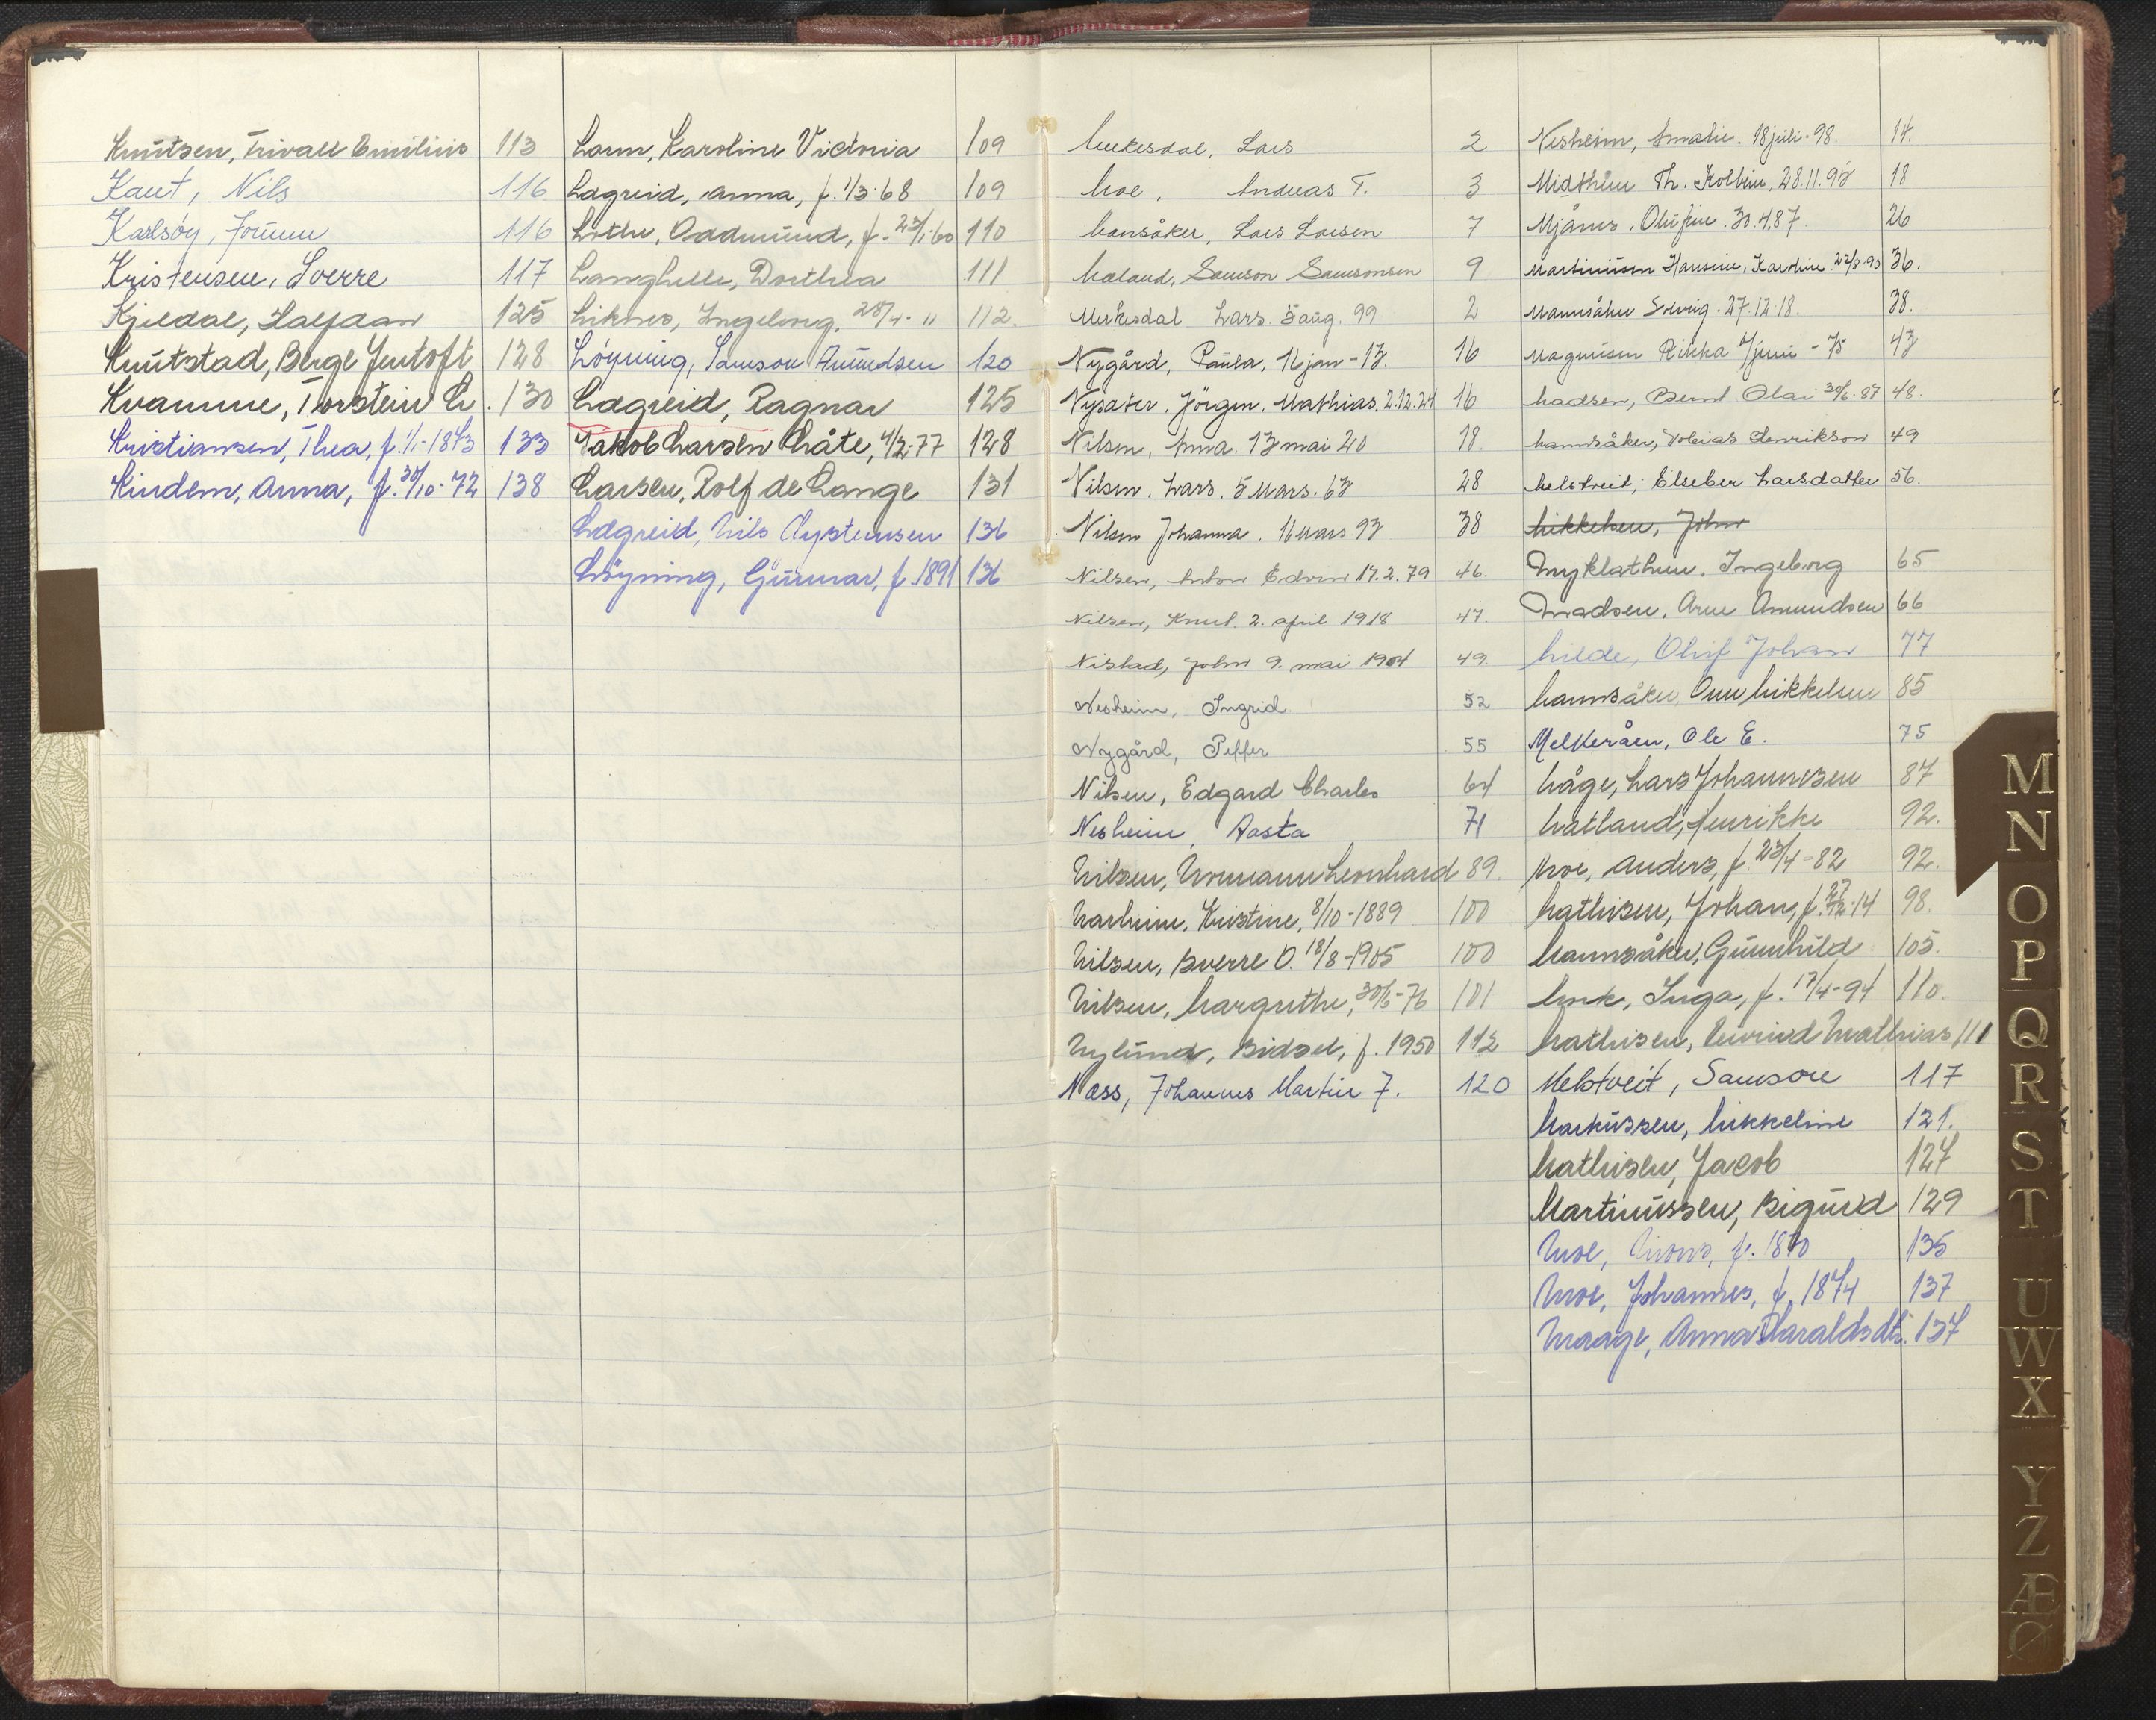 Knutsen, Trivall Emilius 113
Kaut, Nils 116
Karlsöy, Jörunn 116
Kristensen, Sverre 117
Kjildal, Halfdan 125
Knutstad, Berge Jentoft 128
Kvamme, Torstein L. 130
Kristiansen, Thea, f. 1/1-1873 133
Kindem, Anna, f. 30/10-72 138
Larm, Karoline Victoria 109
Lægreid, Anna, f. 1/3-68 109
Lothe, Oddmund, f. 23/1-60 110
Langhelle, Dorthea 111
Liknes, Ingeborg, 28/4- " 112.
Löyning, Samson Amundsen 120
Lægreid, Ragnar 125
Jakob Larsen Låte, 4/2-77 128
Larsen, Rolf de Lange 131
Lægreid, Nils Øystensen 136
Löyning, Gunnar, f. 1891 136
Merkesdal, Lars 2
Moe, Andreas T. 3
Mansåker, Lars Larsen 7
Mæland, Samson Samsonsen 9
Merkesdal Lars. 5 aug. 99 2
Nygård, Paula, 11 jan-13. 16
Nysæter. Jörgen. Mathias. 2.12.24 16
Nilsen, Anna. 13 mai 20 18
Nilsen, Lars. 5 Mars. 63 28
Nilsen Johanna. 11 Mars 93 38
Nilsen, Anton Edvin 17.2.79 46.
Nilsen, Knut. 2. april 1918 47.
Nistad, John 9. mai 1904 49.
Nesheim, Ingrid. 52
Nygård, Petter 55
Nilsen, Edgard Charles 64
Nesheim, Aasta 71
Nilsen, Normann Leonhard 89.
Narheim, Kristine, 8/10-1889 100
Nilsen, Sverre O. 18/8-1905 100
Nilsen, Margrethe, 30/5-76 101
Nylund, Sidsel, f. 1950 112
Næss, Johannes Martin J. 120
Nesheim, Amalie. 18 juli-98. 14.
Midthun Th. Kolbein, 28.11.98 18
Mjånes. Olufine. 30.4.87. 26
Martinusen Hansine, Karoline 22/8.93 36.
Mannsåker Solveig. 27.12.18. 38.
Magnusen Rikka 4/juni - 75 43
Madsen, Bernt Olai 30/6-87 48.
Mannsåker, Tobias Henrikson 49
Melstveit, Elseber Larsdatter 56.
Mikkelsen, John
Myklathun. Ingeborg 65
Madsen, Arne Amundsen 66
Milde, Oluf Johan 77
Mannsåker, Ounn Mikkelsen 85
Melkeråen, Ole E. 75
Måge, Lars Johannesen 87
Matland, Henrikke 92.
Moe, Anders, f. 23/4-82 92.
Mathisen, Johan, f. 27/12-14 98.
Mannsåker, Gunnhild 105.
Mork, Inga, f. 17/4-94 110.
Mathisen, Eivind Mathias 111
Melstveit, Samson 117
Markussen, Mikkeline 121.
Mathisen, Jacob 127
Martinussen, Sigurd 129
Moe, Mons, f. 1870 135
Moe, Johannes, f. 1874 137
Maage, Anna Haraldsdtr. 137
M
N
O
P
Q
R
S
T
U
W
X
Y
Z
Æ
Ø